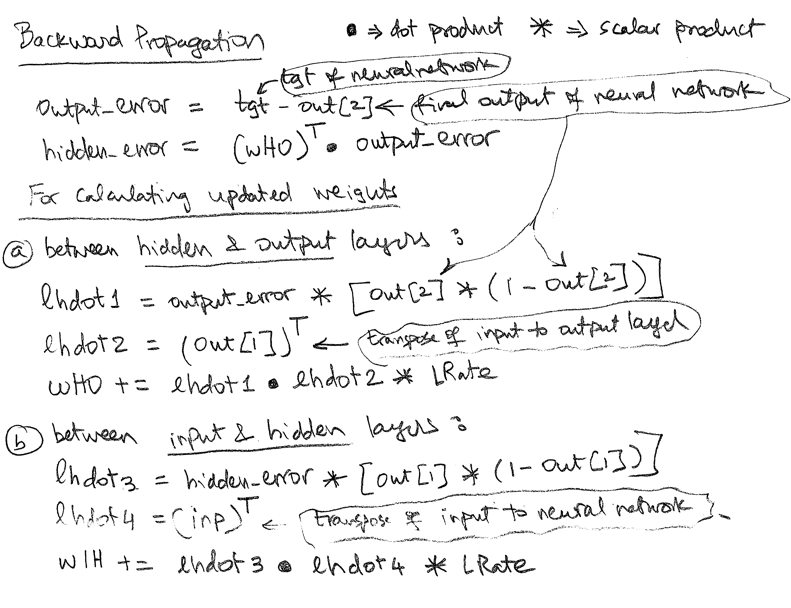 Backward Propagation
• ⇒ dot product * ⇒ scalar product
tgt of neural network
output_error = tgt - out[2] ← final output of neural network
hidden_error = (wHO)^T • output_error
For calculating updated weights
(a) between hidden & output layers :
lhdot1 = output_error * [out[2] * (1 - out[2])]
lhdot2 = (out[1])^T ← transpose of input to output layer
wHO += lhdot1 • lhdot2 * LRate
(b) between input & hidden layers :
lhdot3 = hidden_error * [out[1] * (1 - out[1])]
lhdot4 = (inp)^T ← transpose of input to neural network
wIH += lhdot3 • lhdot4 * LRate